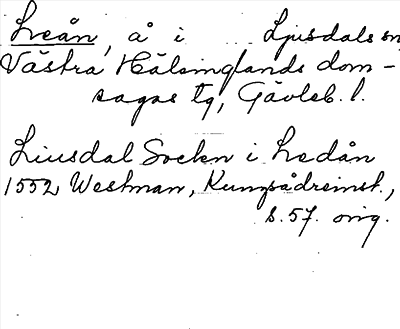 Leån, å i Ljusdals sn,
Västra Hälsinglands dom-
sagas tg, Gävleb. l.
Liusdal Sockn i Ledån
1552 Westman, Kungsådreinst.,
s. 57. orig.